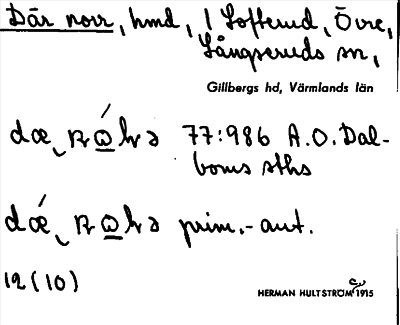 Där norr, hmd, i Sofferud, Övre,
Långseruds sn,
Gillbergs hd, Värmlands län
77:986 A.O. Dal-
boms sths
prim.-aut.
12 (10)
HERMAN HULTSTRÖM 1915